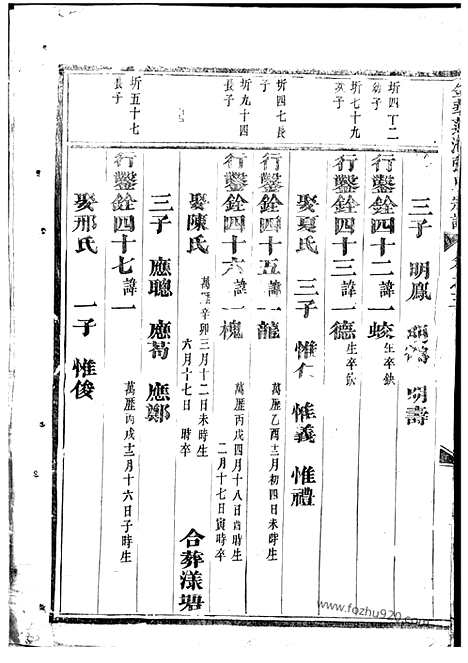 三子 明鳳 明壽
圻四丁二
幼子
行鑿銓四十二諱一蛟生卒缺
圻七十九
次子
行鑿銓四十三諱一德生卒缺
娶夏氏 三子 惟仁 惟義 惟禮
圻四七長
子
行鑿銓四十五諱一龍 萬歷乙酉十二月初四日未時生
圻九十四
長子
行鑿銓四十六諱一槐 萬歷丙戌四月十八日酉時生
二月十七日寅時卒
娶陳氏 萬曆辛卯三月十二日未時生
六月十七日 時卒
合葬漾塘
三子 應聰 應茍 應鄭
圻五十七
長子
行鑿銓四十七諱一 萬歷丙戌十二月十六日子時生
娶邢氏 一子 惟俊
www.fozhu920.com